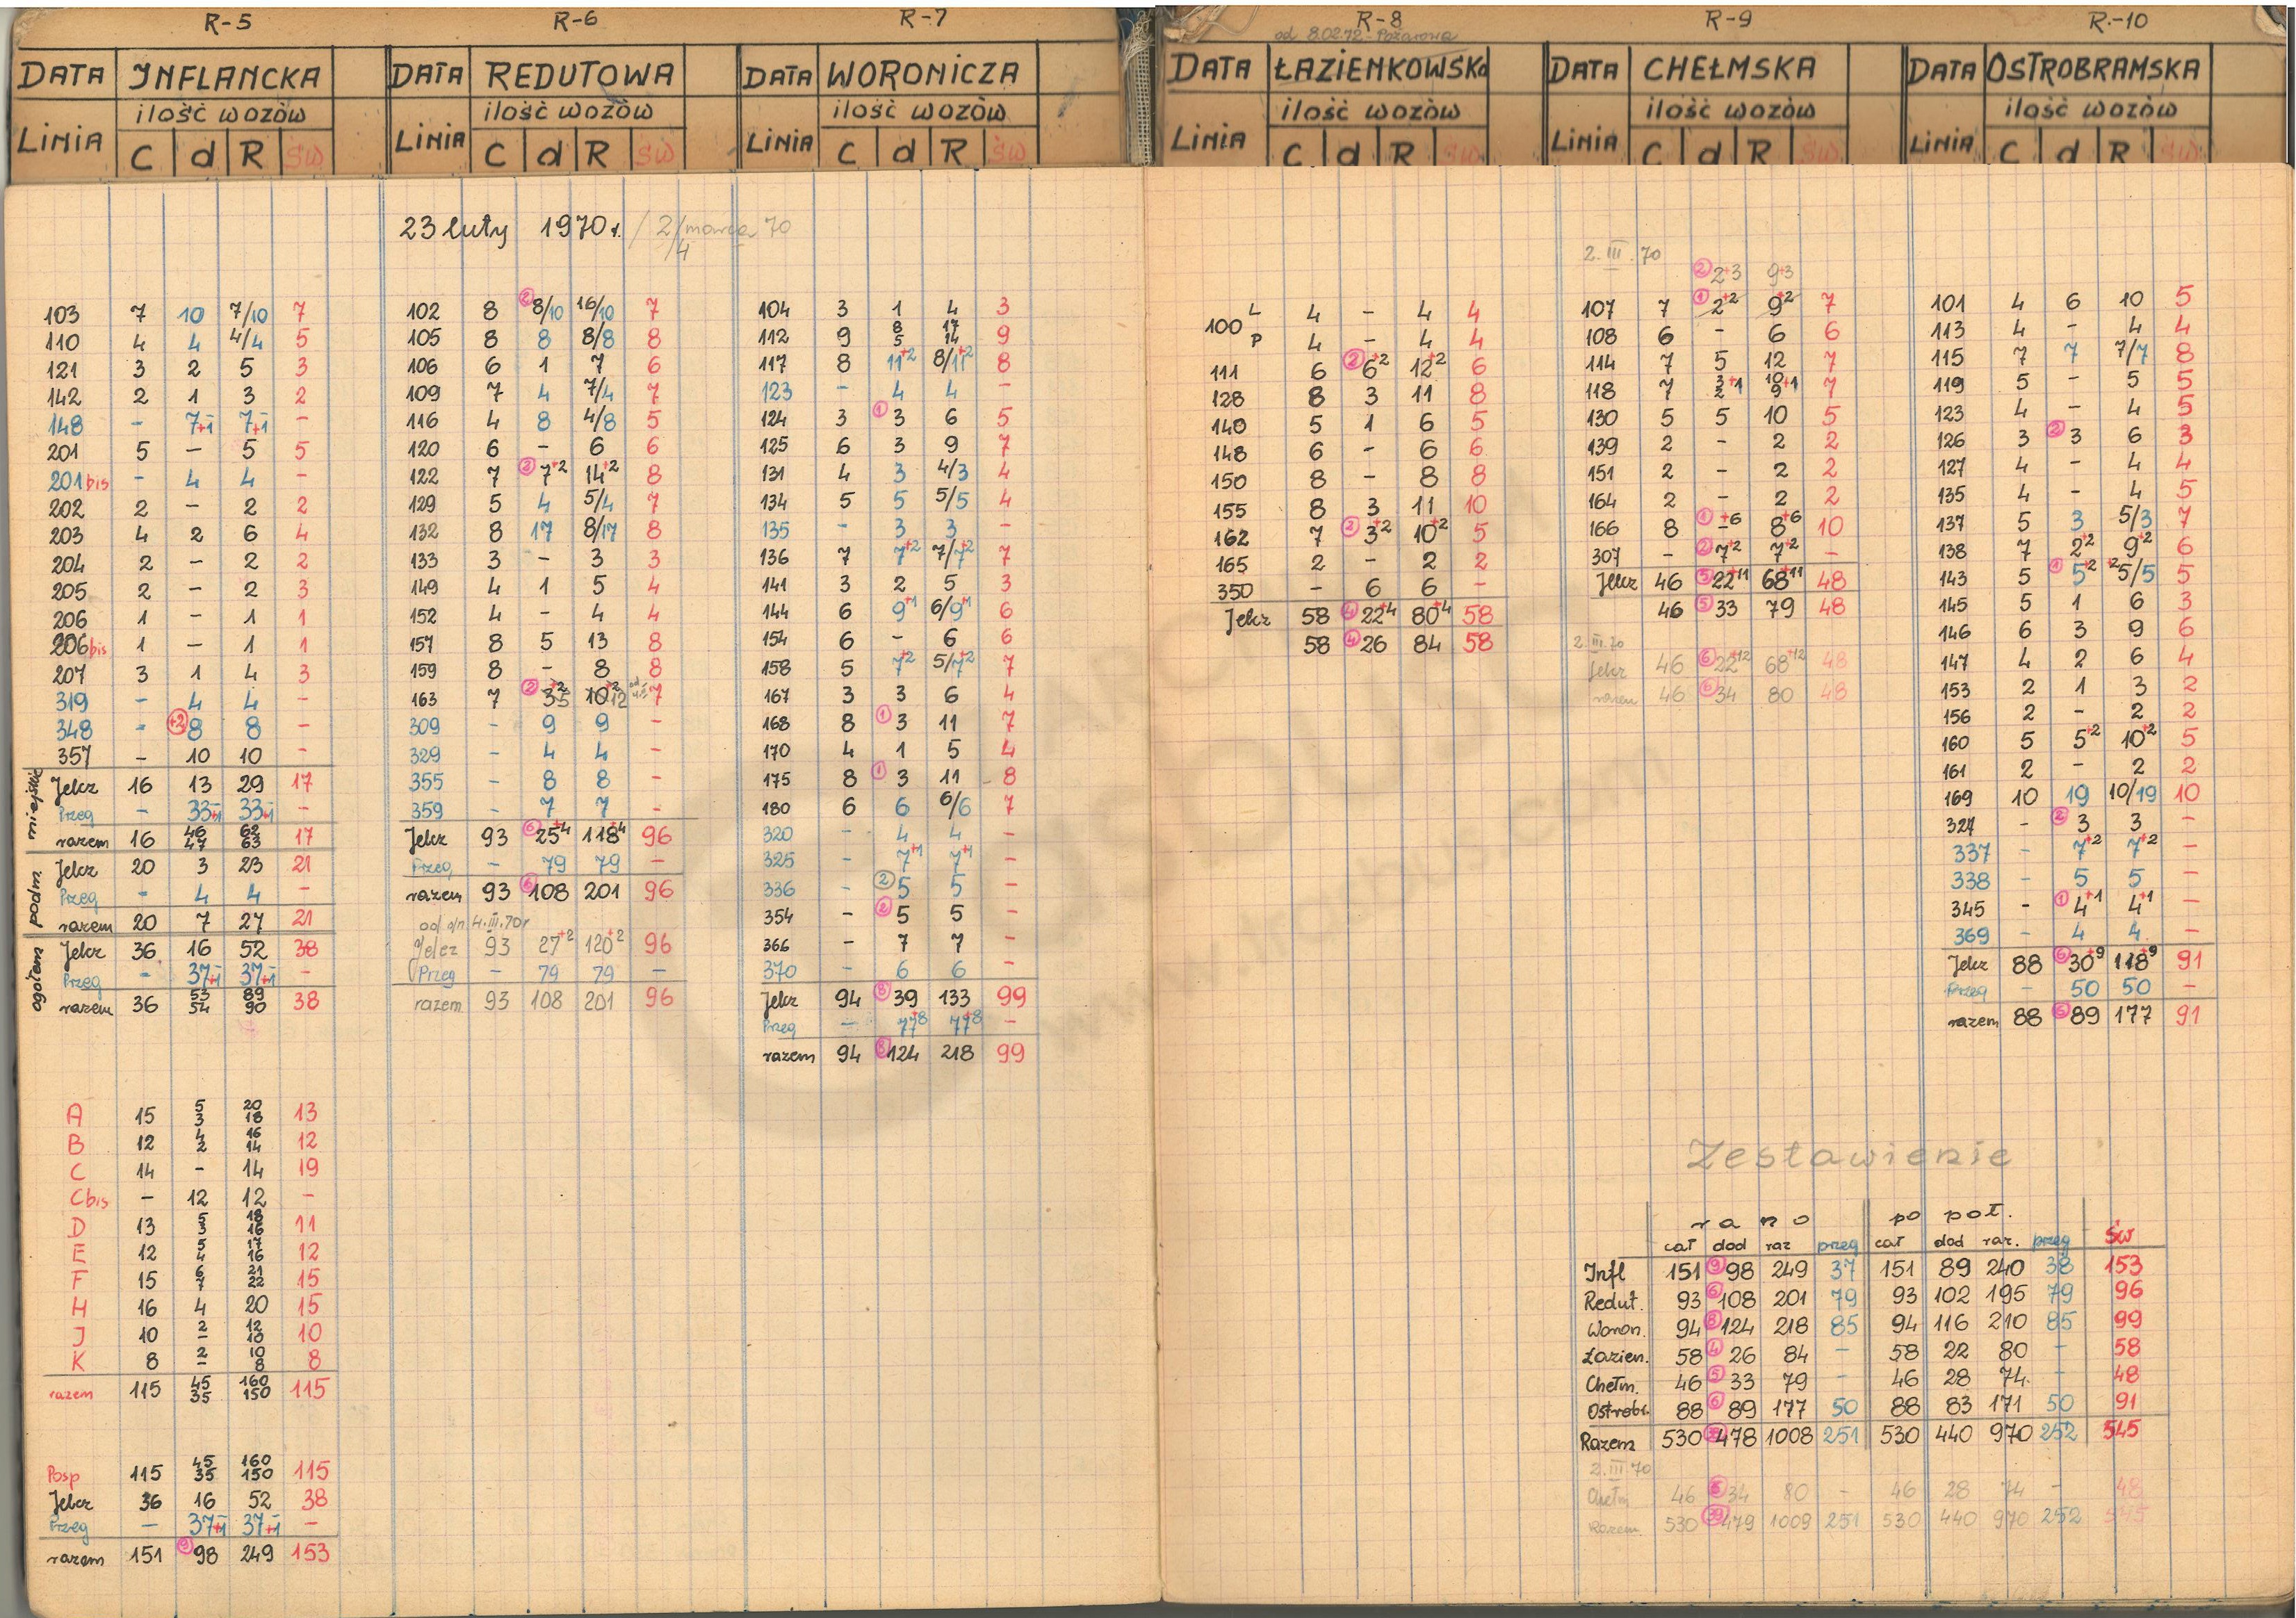 R-5
DATA INFLANCKA
ilość wozów
LINIA C d R św
103 7 10 7/10 7
110 4 4 4/4 5
121 3 2 5 3
142 2 1 3 2
148 - 7+1 7+1 -
201 5 - 5 5
201bis - 4 4 -
202 2 - 2 2
203 4 2 6 4
204 2 - 2 2
205 2 - 2 3
206 1 - 1 1
206bis 1 - 1 1
207 3 1 4 3
319 - 4 4 -
348 - +2 8 8 -
357 - 10 10 -
miejskie
Jelcz 16 13 29 17
Przeg - 33+1 33+1 -
razem 16 46 47 62 63 17
podm
Jelcz 20 3 23 21
Przeg - 4 4 -
razem 20 7 27 21
ogółem
Jelcz 36 16 52 38
Przeg - 37+1 37+1 -
razem 36 53 54 89 90 38
A 15 5 3 20 18 13
B 12 4 2 16 14 12
C 14 - 14 19
Cbis - 12 12 -
D 13 5 3 18 16 11
E 12 5 4 17 16 12
F 15 6 7 21 22 15
H 16 4 20 15
J 10 2 - 12 10 10
K 8 2 - 10 8 8
razem 115 45 35 160 150 115
Posp 115 45 35 160 150 115
Jelcz 36 16 52 38
Przeg - 37+1 37+1 -
razem 151 9 98 249 153
R-6
DATA REDUTOWA
ilość wozów
LINIA C d R św
23 luty 1970 r. / 2/marca 70
/4
102 8 2 8/10 16/10 7
105 8 8 8/8 8
106 6 1 7 6
109 7 4 7/4 7
116 4 8 4/8 5
120 6 - 6 6
122 7 2 7+2 14+2 8
129 5 4 5/4 7
132 8 17 8/17 8
133 3 - 3 3
149 4 1 5 4
152 4 - 4 4
157 8 5 13 8
159 8 - 8 8
163 7 2 3+2 5 10+2 12 7
309 - 9 9 -
329 - 4 4 -
355 - 8 8 -
359 - 7 7 -
Jelcz 93 6 25+4 118+4 96
Przeg - 79 79 -
razem 93 6 108 201 96
od dn. 4.III.70r
Jelcz 93 27+2 120+2 96
Przeg - 79 79 -
razem 93 108 201 96
R-7
DATA WORONICZA
ilość wozów
LINIA C d R św
104 3 1 4 3
112 9 8 5 17 14 9
117 8 11+2 8/11+2 8
123 - 4 4 -
124 3 1 3 6 5
125 6 3 9 7
131 4 3 4/3 4
134 5 5 5/5 4
135 - 3 3 -
136 7 7+2 7/7+2 7
141 3 2 5 3
144 6 9+1 6/9+1 6
154 6 - 6 6
158 5 7+2 5/7+2 7
167 3 3 6 4
168 8 1 3 11 7
170 4 1 5 4
175 8 1 3 11 8
180 6 6 6/6 7
320 - 4 4 -
325 - 7+1 7+1 -
336 - 2 5 5 -
354 - 2 5 5 -
366 - 7 7 -
370 - 6 6 -
Jelcz 94 8 39 133 99
Przeg - 77+8 77+8 -
razem 94 8 124 218 99
R-8
od 8.02.72 - Pożarowa
DATA ŁAZIENKOWSKA
ilość wozów
LINIA C d R św
100 L 4 - 4 4
P 4 - 4 4
111 6 2 6+2 12+2 6
128 8 3 11 8
140 5 1 6 5
148 6 - 6 6
150 8 - 8 8
155 8 3 11 10
162 7 2 3+2 10+2 5
165 2 - 2 2
350 - 6 6 -
Jelcz 58 4 22+4 80+4 58
58 4 26 84 58
R-9
DATA CHEŁMSKA
ilość wozów
LINIA C d R św
2.III.70
2 2+3 9+3
107 7 1 2+2 9+2 7
108 6 - 6 6
114 7 5 12 7
118 7 3 2 +1 10 9 +1 7
130 5 5 10 5
139 2 - 2 2
151 2 - 2 2
164 2 - 2 2
166 8 1 -+6 8+6 10
307 - 2 7+2 7+2 -
Jelcz 46 5 22+11 68+11 48
46 5 33 79 48
2.III.70
Jelcz 46 6 22+12 68+12 48
razem 46 6 34 80 48
R-10
DATA OSTROBRAMSKA
ilość wozów
LINIA C d R św
101 4 6 10 5
113 4 - 4 4
115 7 7 7/7 8
119 5 - 5 5
123 4 - 4 5
126 3 2 3 6 3
127 4 - 4 4
135 4 - 4 5
137 5 3 5/3 7
138 7 2+2 9+2 6
143 5 1 5+2 +2 5/5 5
145 5 1 6 3
146 6 3 9 6
147 4 2 6 4
153 2 1 3 2
156 2 - 2 2
160 5 5+2 10+2 5
161 2 - 2 2
169 10 19 10/19 10
327 - 2 3 3 -
337 - 7+2 7+2 -
338 - 5 5 -
345 - 1 4+1 4+1 -
369 - 4 4 -
Jelcz 88 6 30+9 118+9 91
Przeg - 50 50 -
razem 88 6 89 177 91
Zestawienie
rano po poł.
cał dod raz przeg cał dod raz. przeg św
Infl 151 9 98 249 37 151 89 240 38 153
Redut. 93 6 108 201 79 93 102 195 79 96
Woron. 94 8 124 218 85 94 116 210 85 99
Łazien. 58 4 26 84 - 58 22 80 - 58
Chełm. 46 5 33 79 - 46 28 74 - 48
Ostrobr. 88 6 89 177 50 88 83 171 50 91
Razem 530 38 478 1008 251 530 440 970 252 545
2.III.70
Chełm 46 6 34 80 - 46 28 74 - 48
Razem 530 39 479 1009 251 530 440 970 252 545